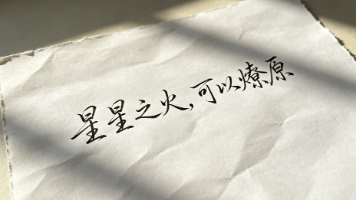 星星之火,可以燎原